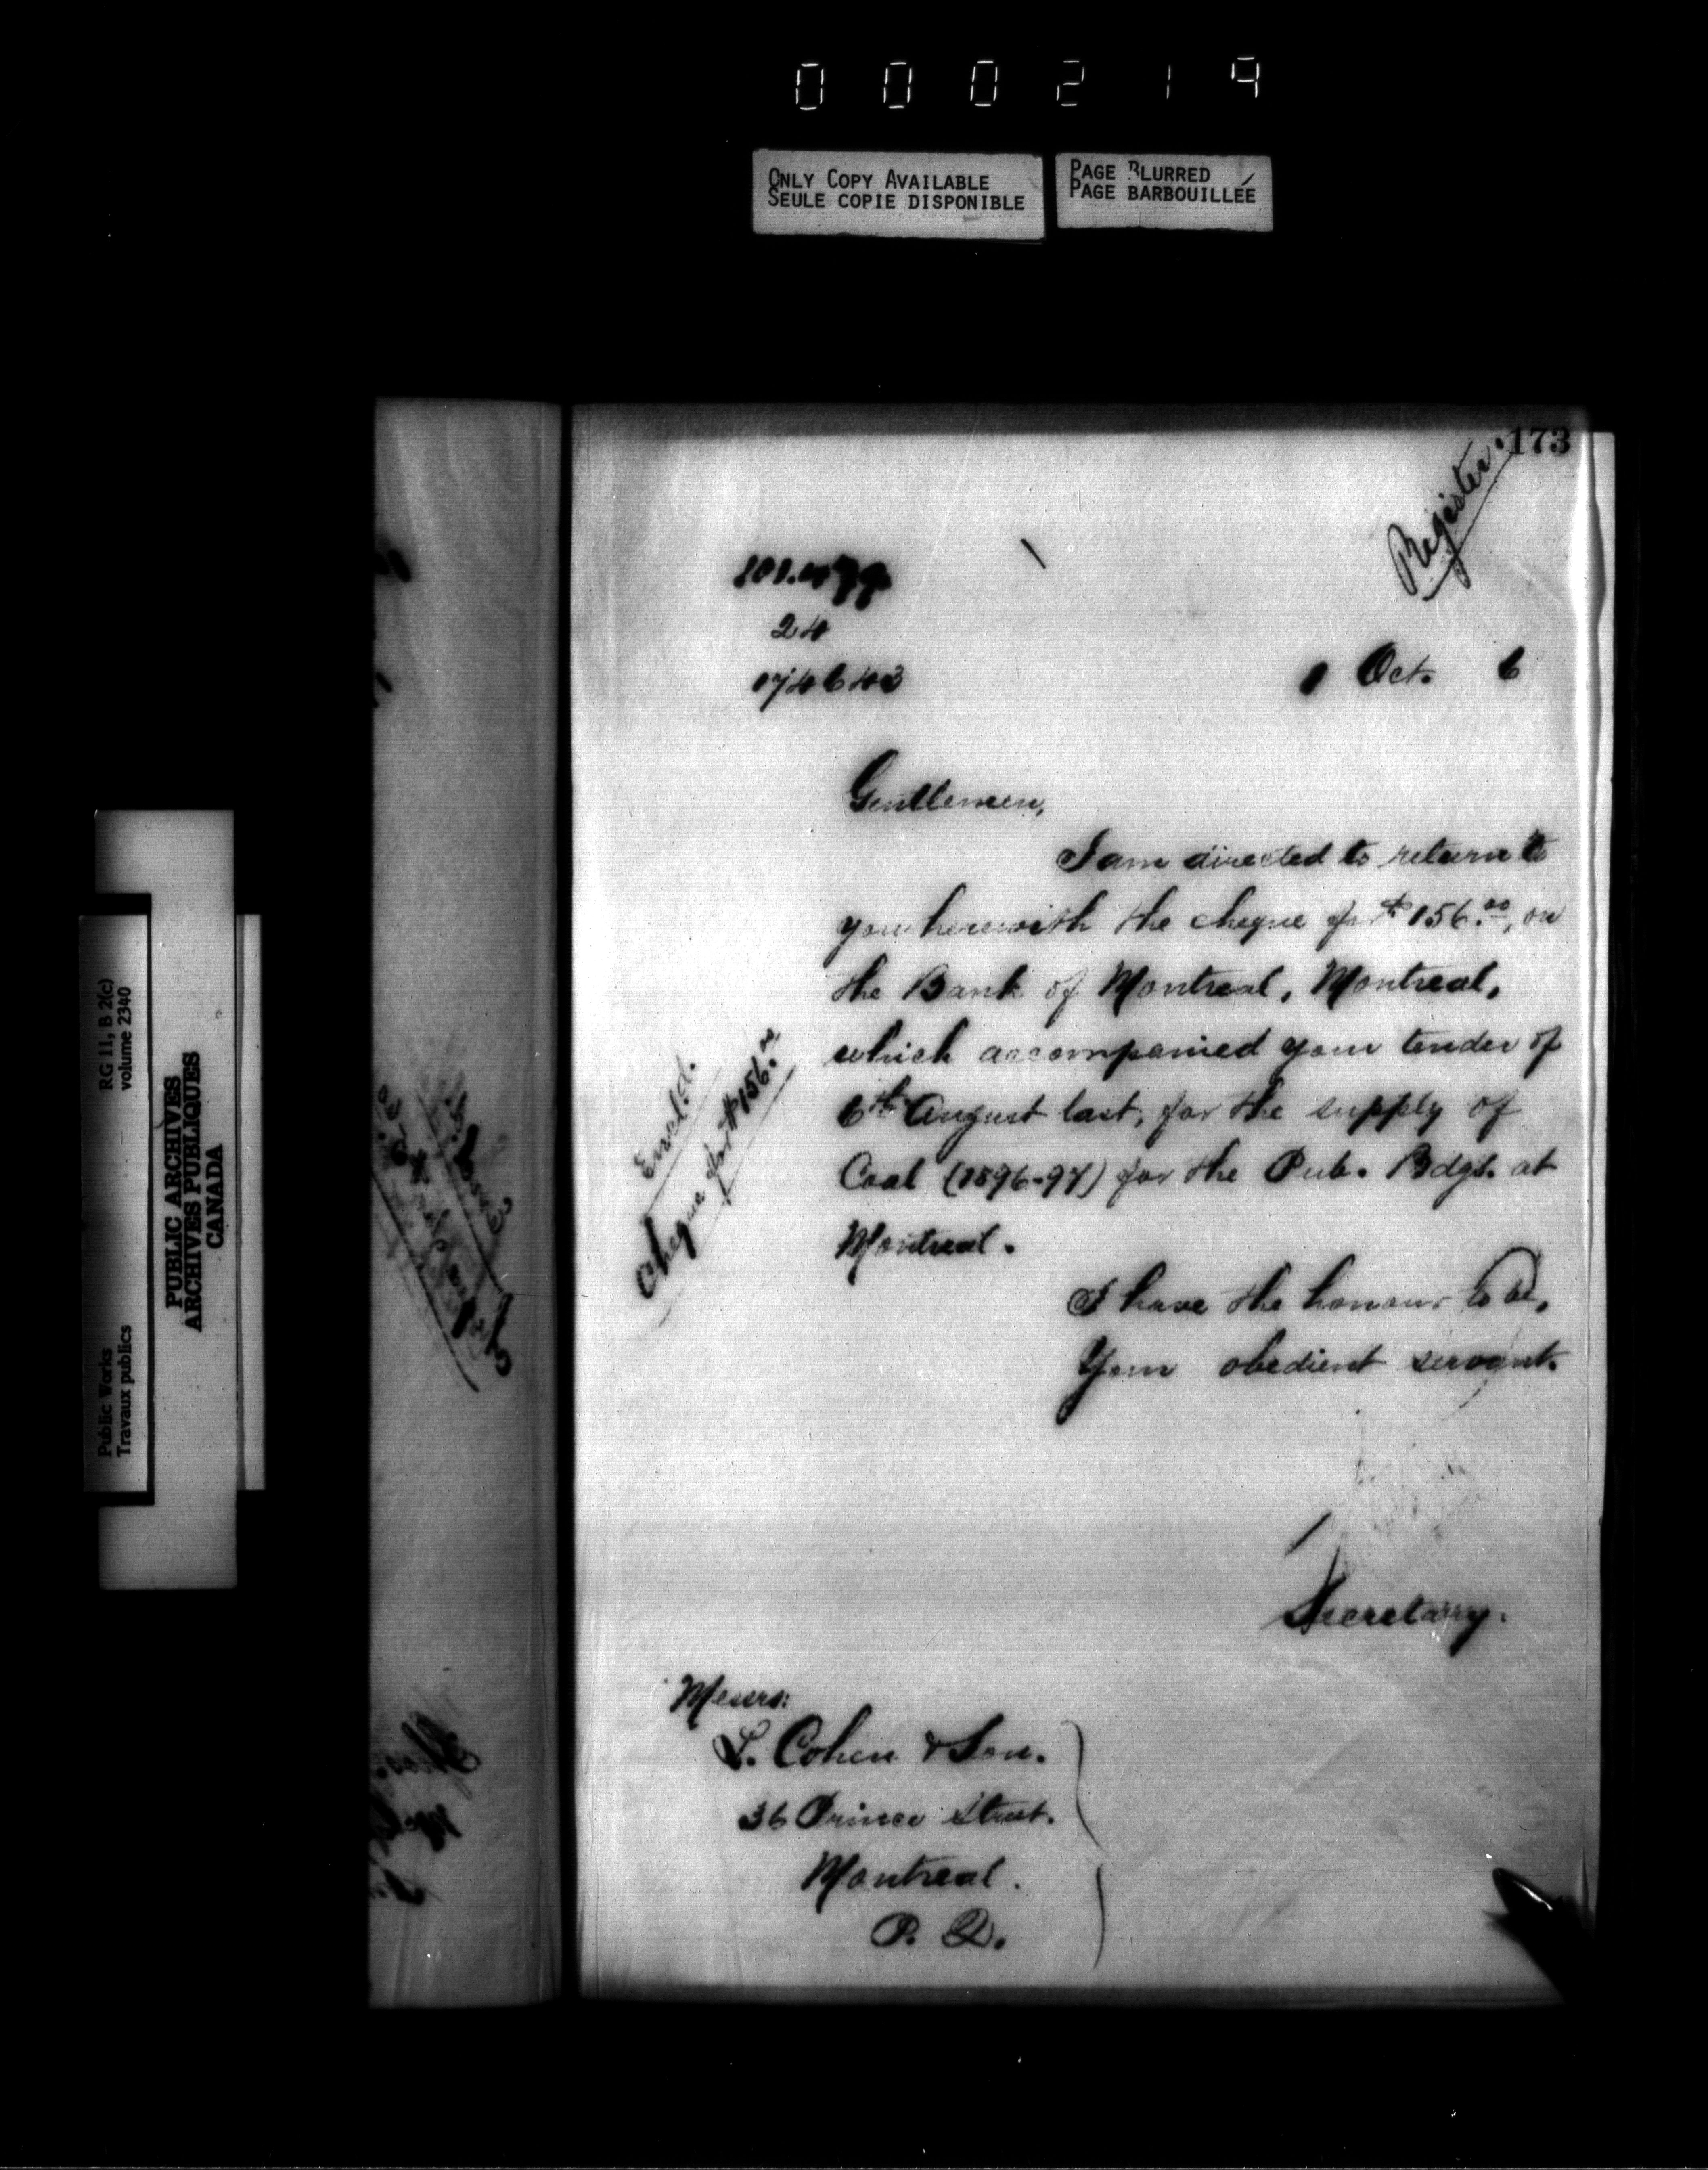 000219
ONLY COPY AVAILABLE
SEULE COPIE DISPONIBLE
PAGE BLURRED
PAGE BARBOUILLÉE
173
Register.
24
1 Oct. 6
Gentlemen,
I am directed to return to
you herewith the cheque for $156.00, on
the Bank of Montreal, Montreal,
which accompanied your tender of
6th August last, for the supply of
Coal (1896-97) for the Pub. Bdgs. at
Montreal.
Encl.d.
Cheque for $156.00
I have the honour to be,
Your obedient servant.
Secretary.
Messrs:
L. Cohen & Son.
36 Prince Street.
Montreal.
P. Q.
RG 11, B 2(c)
volume 2340
Public Works
Travaux publics
PUBLIC ARCHIVES
ARCHIVES PUBLIQUES
CANADA